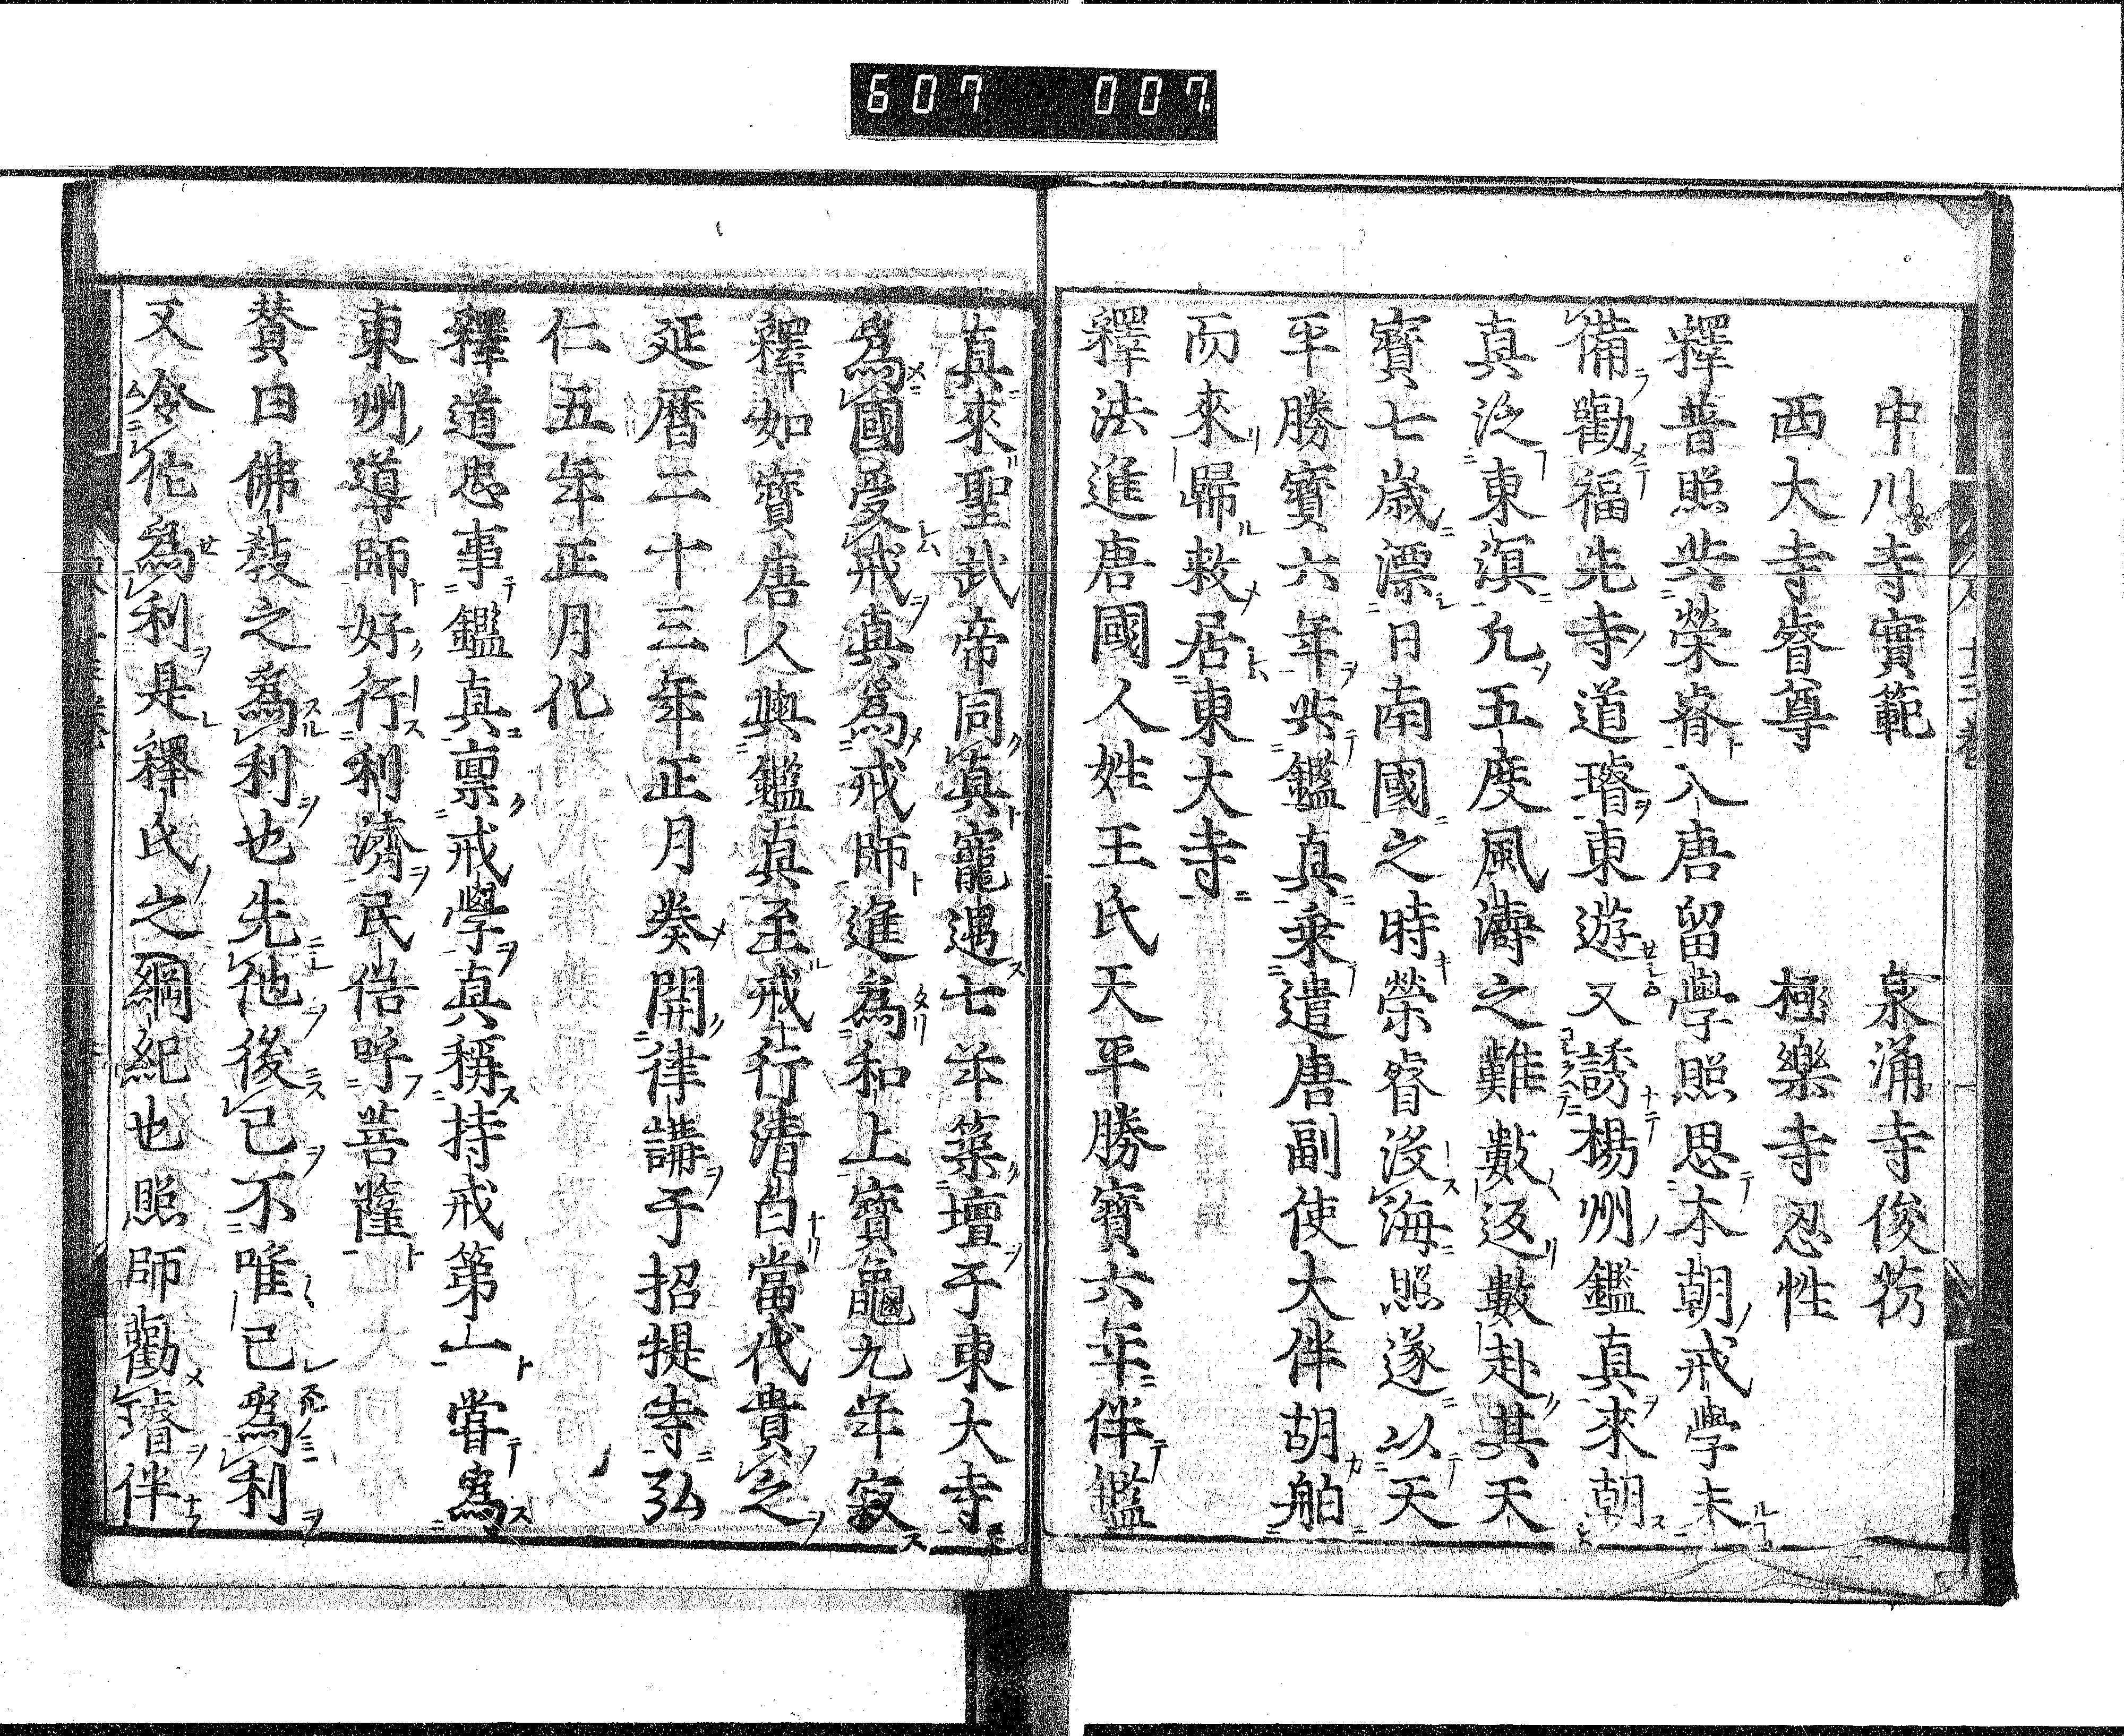 607 007
中川寺實範 泉涌寺俊芿
西大寺睿尊 極樂寺忍性
釋普照共榮睿入唐留學照思本朝戒學未
備勸福先寺道璿東遊又誘楊州鑑真來朝
真泛東溟凢五度風濤之難數返數赴其天
寶七歳漂日南國之時榮睿没海照遂以天
平勝寶六年共鑑真乗遣唐副使大伴胡舶
而來歸敕居東大寺
釋法進唐國人姓王氏天平勝寶六年伴鑑
真來聖武帝同真寵遇七年築壇于東大寺
為國受戒真為戒師進為和上寶龜九年寂
釋如寶唐人與鑑真至戒行清白當代貴之
延暦二十三年正月癸開律講于招提寺弘
仁五年正月化
釋道忠事鑑真禀戒學真稱持戒第一嘗為
東州導師好行利濟民俗呼菩薩
賛曰佛教之為利也先他後己不唯己為利
又冷佗為利是釋氏之綱紀也照師勸璿伴